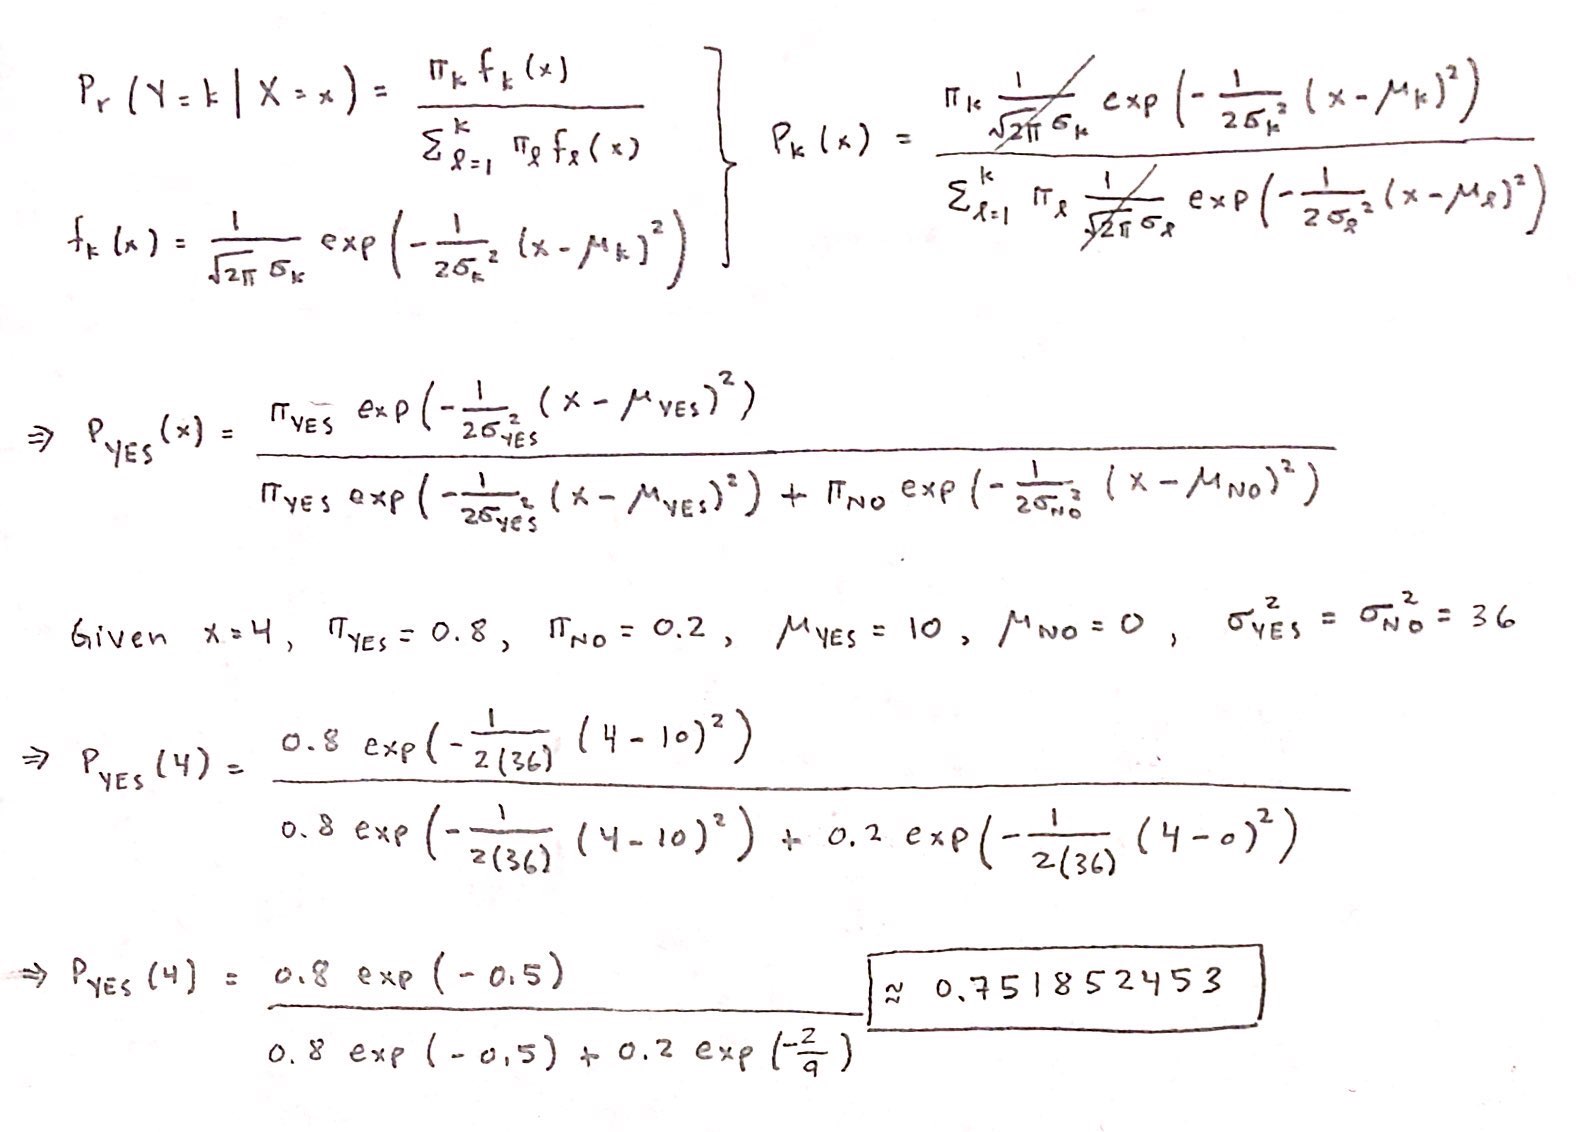 Pr(Y=k|X=x) = π_k f_k(x) / Σ_{ℓ=1}^{k} π_ℓ f_ℓ(x)
f_k(x) = 1/(√2π σ_k) exp(-1/(2σ_k²) (x-μ_k)²)
} P_k(x) = π_k 1/(√2π σ_k) exp(-1/(2σ_k²) (x-μ_k)²) / Σ_{ℓ=1}^{k} π_ℓ 1/(√2π σ_ℓ) exp(-1/(2σ_ℓ²) (x-μ_ℓ)²)
⇒ P_YES(x) = π_YES exp(-1/(2σ²_YES) (x-μ_YES)²) / π_YES exp(-1/(2σ²_yes) (x-μ_YES)²) + π_NO exp(-1/(2σ²_NO) (x-μ_NO)²)
Given x=4, π_YES = 0.8, π_NO = 0.2, μ_YES = 10, μ_NO = 0, σ²_YES = σ²_NO = 36
⇒ P_YES(4) = 0.8 exp(-1/2(36) (4-10)²) / 0.8 exp(-1/2(36) (4-10)²) + 0.2 exp(-1/2(36) (4-0)²)
⇒ P_YES(4) = 0.8 exp(-0.5) / 0.8 exp(-0.5) + 0.2 exp(-2/9) ≈ 0.751852453